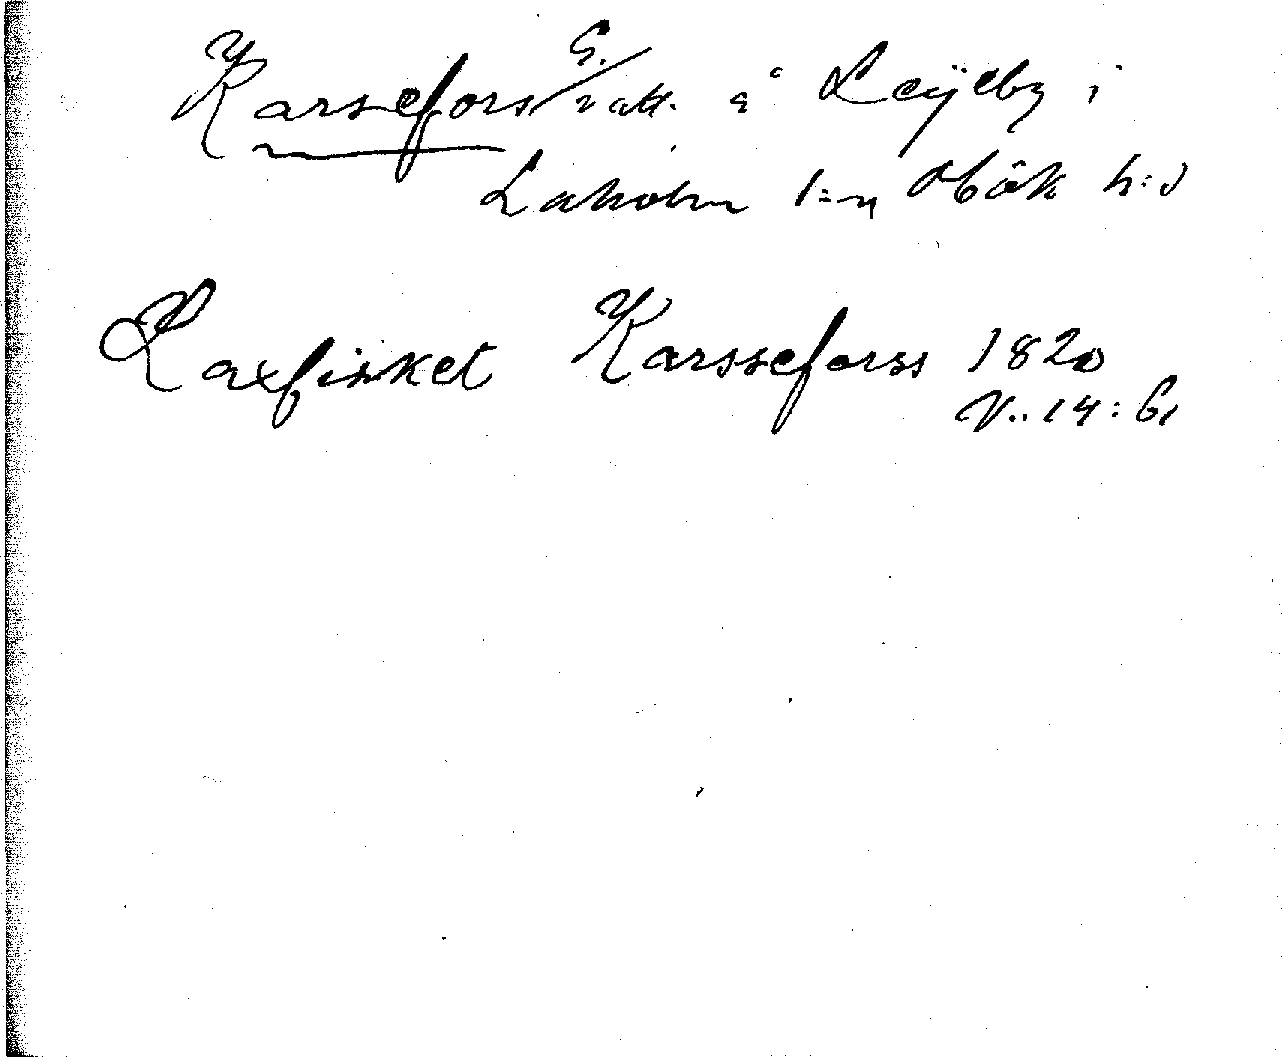 Karsefors G./vatt. å Lejeby i
Laholm l:n Hök h:d
Laxfisket Karsseforss 1820
V.. 14: 61